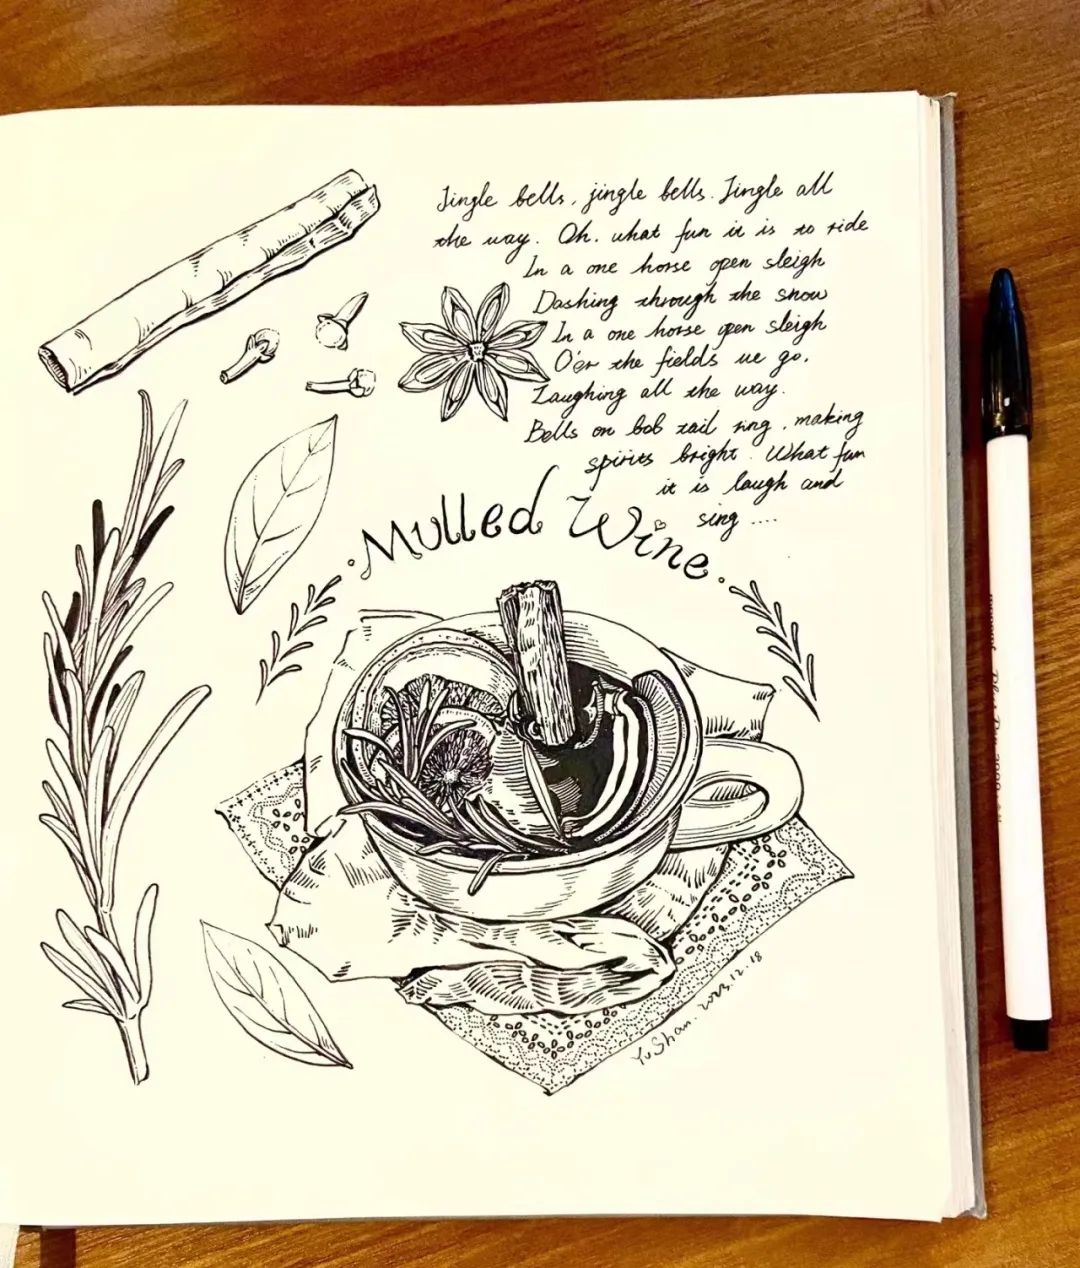 Jingle bells, jingle bells. Jingle all
the way. Oh, what fun it is to ride
In a one horse open sleigh
Dashing through the snow
In a one horse open sleigh
O'er the fields we go.
Laughing all the way.
Bells on bob tail ring, making
spirits bright. What fun
it is laugh and
sing ....
Mulled Wine
YuShan. 2023.12.18